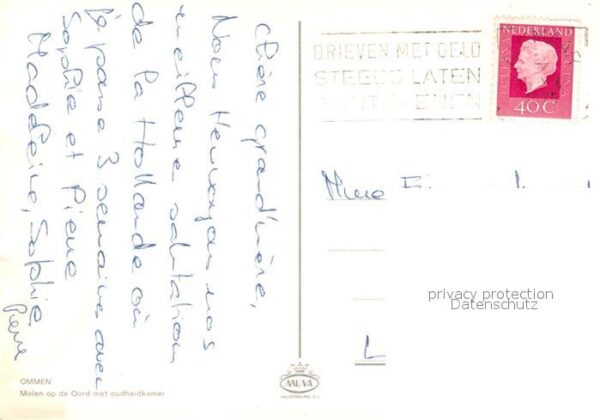 Chère grand'mère,
Nous t'envoyons nos
meilleures salutations
de la Hollande où
je passe 3 semaines avec
Sophie et Pierre
Madeleine, Sophie
Pierre
OMMEN
Molen op de Oord met oudheidkamer
MUVA
VALKENBURG
BRIEVEN MET GELD
STEEDS LATEN
AANTEKENEN
NEDERLAND
40 C
Mme
L
privacy protection
Datenschutz